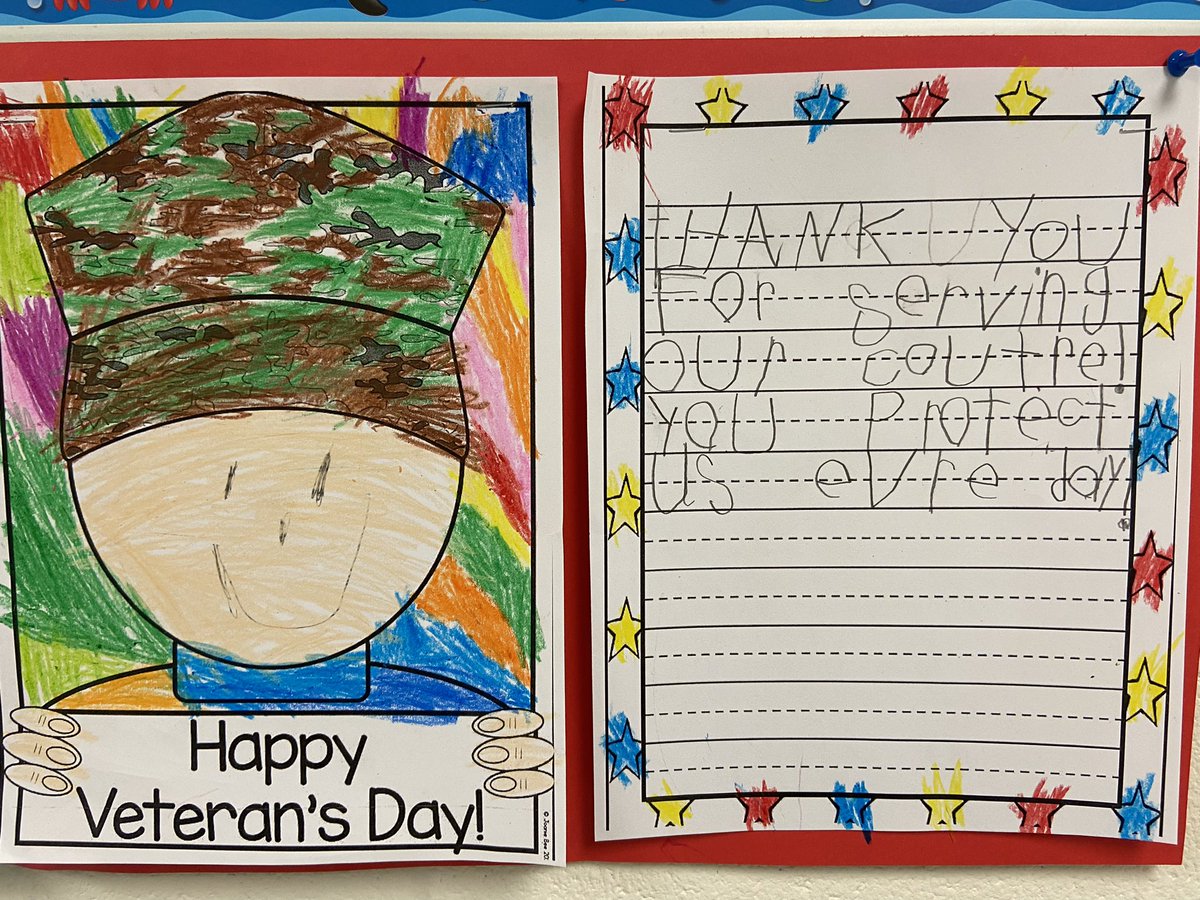 Happy
Veteran's Day!
THANK YOU
For serving
our coutre!
you Protect
us evre day!